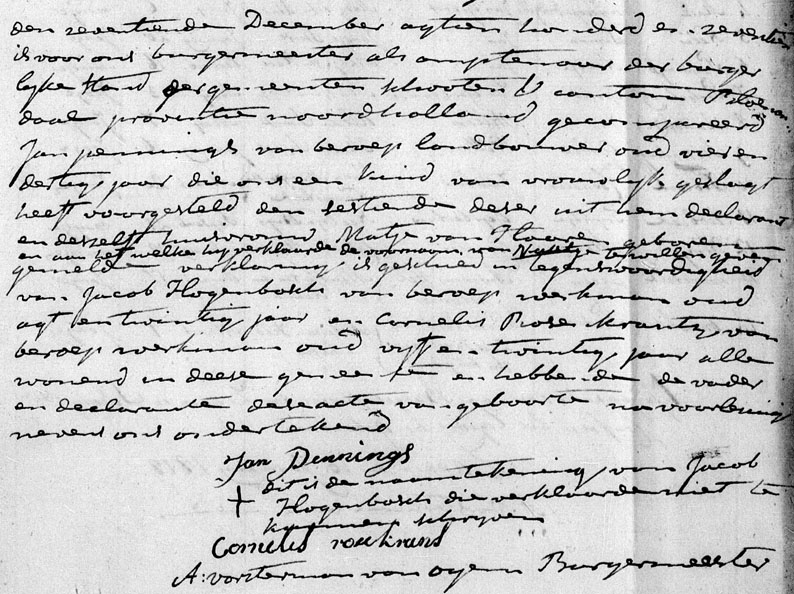 den zeventiende December agtien honderd en zeventien
is voor ons burgermeester als amptenaar der burger
lyke stand der gemeenten schooten canton Bloemen
daal provintie noordholland gecompareerd
Jan pennings van beroep landbouwer oud vier en
dertig jaar die ons een kind van vrouwlyk geslagt
heeft voorgesteld den sestiende deser uit hem declarant
en deszelfs huisvrouw Matje van Haaren geboren
en aan het welke hy verklaarde de voornaam van te willen geven
gemelde verklaring is geschied in tegenswoordigheid
van Jacob Hogenbosch van beroep werkman oud
agt en twintig jaar en Cornelis Rosekrantz van
beroep werkman oud vyf en twintig jaar alle
wonend in deese gemeente en hebbende de vader
en declarante dese acte van geboorte na voorlesing
nevens ons ondertekend
Jan Pennings
dit is de naamtekening van Jacob
+ Hogenbosch die verklaarde niet te
kunnen schryven
Cornelis rosekrans
A: vorsterman van oyen Burgermeester